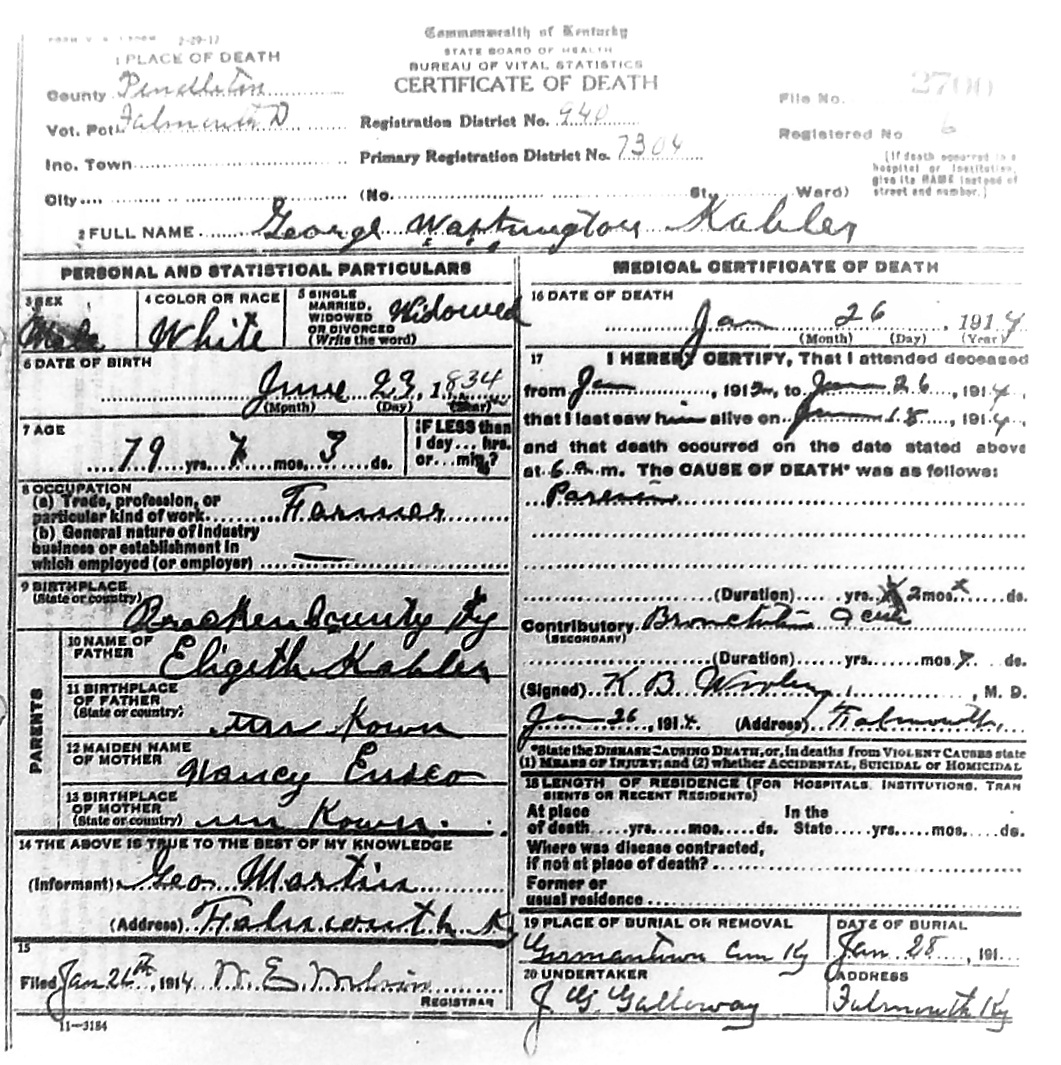 2-29-12
Commonwealth of Kentucky
STATE BOARD OF HEALTH
BUREAU OF VITAL STATISTICS
CERTIFICATE OF DEATH
1 PLACE OF DEATH
County Pendleton
Vot. Pct. Falmouth D
Inc. Town
City
Registration District No. 940
Primary Registration District No. 7304
(No. St., Ward)
File No. 2700
Registered No 6
(If death occurred in a
hospital or institution,
give its NAME instead of
street and number.)
2 FULL NAME George Washington Kahler
PERSONAL AND STATISTICAL PARTICULARS
3 SEX
Male
4 COLOR OR RACE
White
5 SINGLE
MARRIED,
WIDOWED
OR DIVORCED
(Write the word)
Widowed
6 DATE OF BIRTH
June 23, 1834
(Month) (Day) (Year)
7 AGE
79 yrs. 7 mos. 3 ds.
IF LESS than
1 day... hrs.
or... min?
8 OCCUPATION
(a) Trade, profession, or
particular kind of work Farmer
(b) General nature of industry
business or establishment in
which employed (or employer)
9 BIRTHPLACE
(State or country)
Bracken County Ky
PARENTS
10 NAME OF
FATHER
Eligeth Kahler
11 BIRTHPLACE
OF FATHER
(State or country)
un Kown
12 MAIDEN NAME
OF MOTHER
Nancy
13 BIRTHPLACE
OF MOTHER
(State or country) un Kown
14 THE ABOVE IS TRUE TO THE BEST OF MY KNOWLEDGE
(Informant) Geo Martin
(Address) Falmouth Ky
15
Filed Jan 26th, 1914 W. E.
REGISTRAR
11-3184
MEDICAL CERTIFICATE OF DEATH
16 DATE OF DEATH
Jan 26, 1914
(Month) (Day) (Year)
17 I HEREBY CERTIFY, That I attended deceased
from Jan, 191, to Jan 26, 1914,
that I last saw him alive on Jan 18, 1914,
and that death occurred on the date stated above
at 6 a.m. The CAUSE OF DEATH* was as follows:
(Duration) yrs. 2 mos. ds.
Contributory Bronchitis
(SECONDARY)
(Duration) yrs. mos 7 ds.
(Signed) K B, M. D.
Jan 26, 1914 (Address) Falmouth
*State the DISEASE CAUSING DEATH, or, in deaths from VIOLENT CAUSES state
(1) MEANS OF INJURY; and (2) whether ACCIDENTAL, SUICIDAL or HOMICIDAL
18 LENGTH OF RESIDENCE (FOR HOSPITALS, INSTITUTIONS, TRAN
SIENTS OR RECENT RESIDENTS)
At place In the
of death yrs. mos. ds. State yrs. mos. ds.
Where was disease contracted,
if not at place of death?
Former or
usual residence
19 PLACE OF BURIAL OR REMOVAL
Germantown Cem Ky
DATE OF BURIAL
Jan. 28, 191
20 UNDERTAKER
J G Galloway
ADDRESS
Falmouth Ky